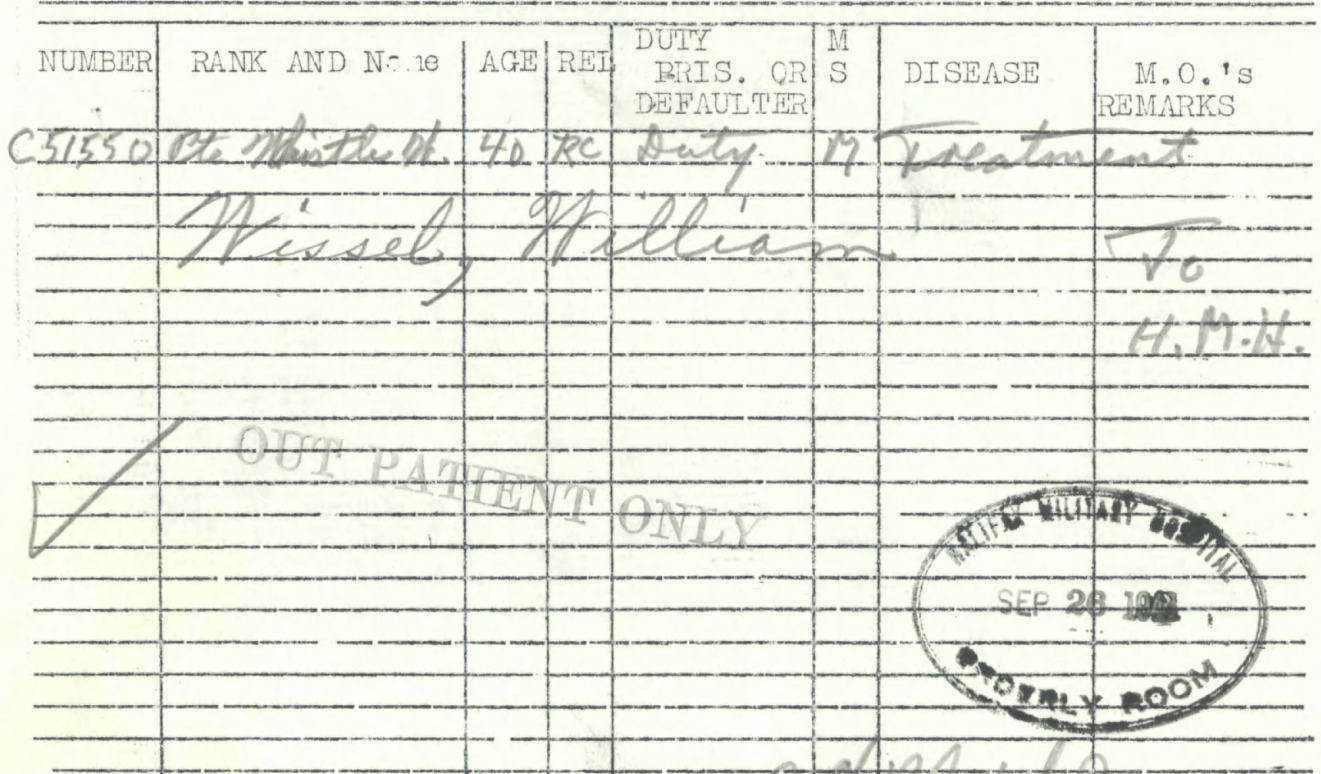 NUMBER RANK AND Name AGE REL DUTY PRIS. OR DEFAULTER M S DISEASE M.O.'s REMARKS
C51550 Pte Whistle W. 40 RC Duty M Treatment
Wissel, William
To
H.M.H.
OUT PATIENT ONLY
HALIFAX MILITARY HOSPITAL
SEP 26
ORDERLY ROOM